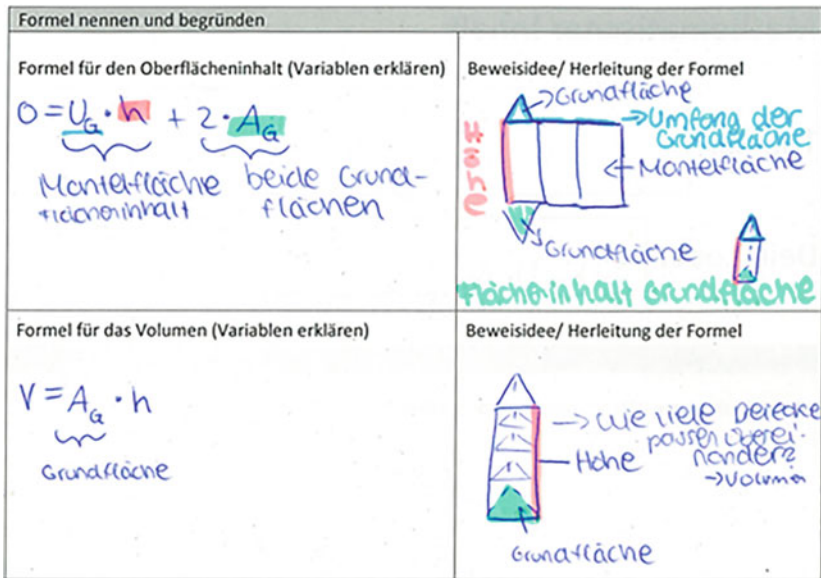 Formel nennen und begründen
Formel für den Oberflächeninhalt (Variablen erklären)
O = U_G · h + 2 · A_G
Mantelfläche beide Grund-
flächeninhalt flächen
Beweisidee/ Herleitung der Formel
→ Grundfläche
→ Umfang der
Grundfläche
← Mantelfläche
Höhe
→ Grundfläche
Flächeninhalt Grundfläche
Formel für das Volumen (Variablen erklären)
V = A_G · h
Grundfläche
Beweisidee/ Herleitung der Formel
→ Wie viele Dreiecke
passen überei-
nander?
→ Volumen
Höhe
Grundfläche